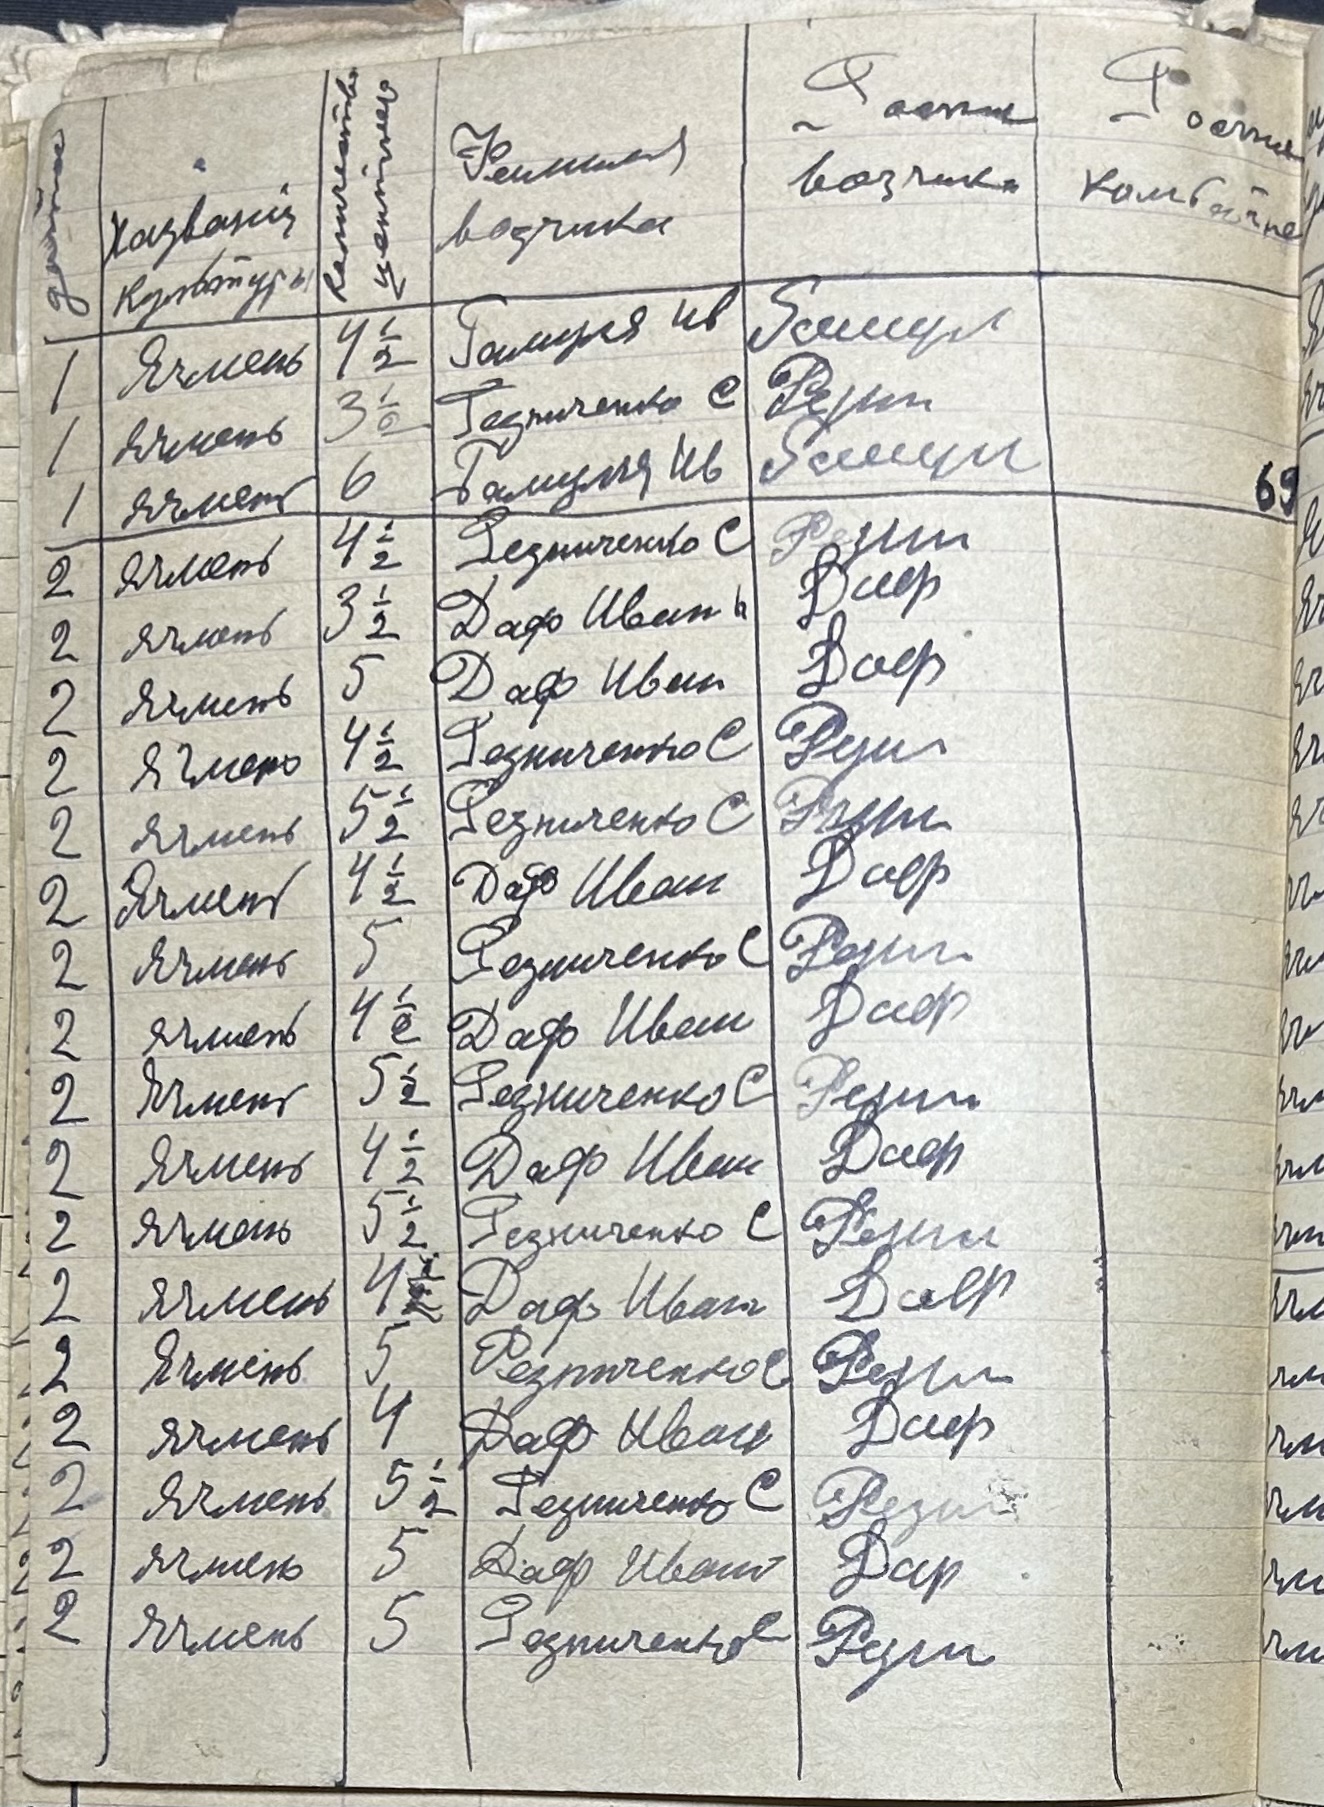 дата Название культуры Количество центнер Фамилия возчика Роспис возчика Роспис комбайне
1 Ячмень 4 1/2 Гамуля Ив Гамул
1 ячмень 3 1/2 Резниченко С Резн
1 ячмень 6 Гамуля Ив Гамул
69
2 ячмень 4 1/2 Резниченко С Резн
2 ячмень 3 1/2 Даф Иван Даф
2 ячмень 5 Даф Иван Даф
2 ячмень 4 1/2 Резниченко С Резн
2 ячмень 5 1/2 Резниченко С Резн
2 Ячмень 4 1/2 Даф Иван Даф
2 ячмень 5 Резниченко С Резн
2 ячмень 4 1/2 Даф Иван Даф
2 Ячмень 5 1/2 Резниченко С Резн
2 Ячмень 4 1/2 Даф Иван Даф
2 ячмень 5 1/2 Резниченко С Резн
2 ячмень 4 Даф Иван Даф
2 Ячмень 5 Резниченко С Резн
2 ячмень 4 Даф Иван Даф
2 Ячмень 5 1/2 Резниченко С Резн
2 ячмень 5 Даф Иван Даф
2 ячмень 5 Резниченко С Резн